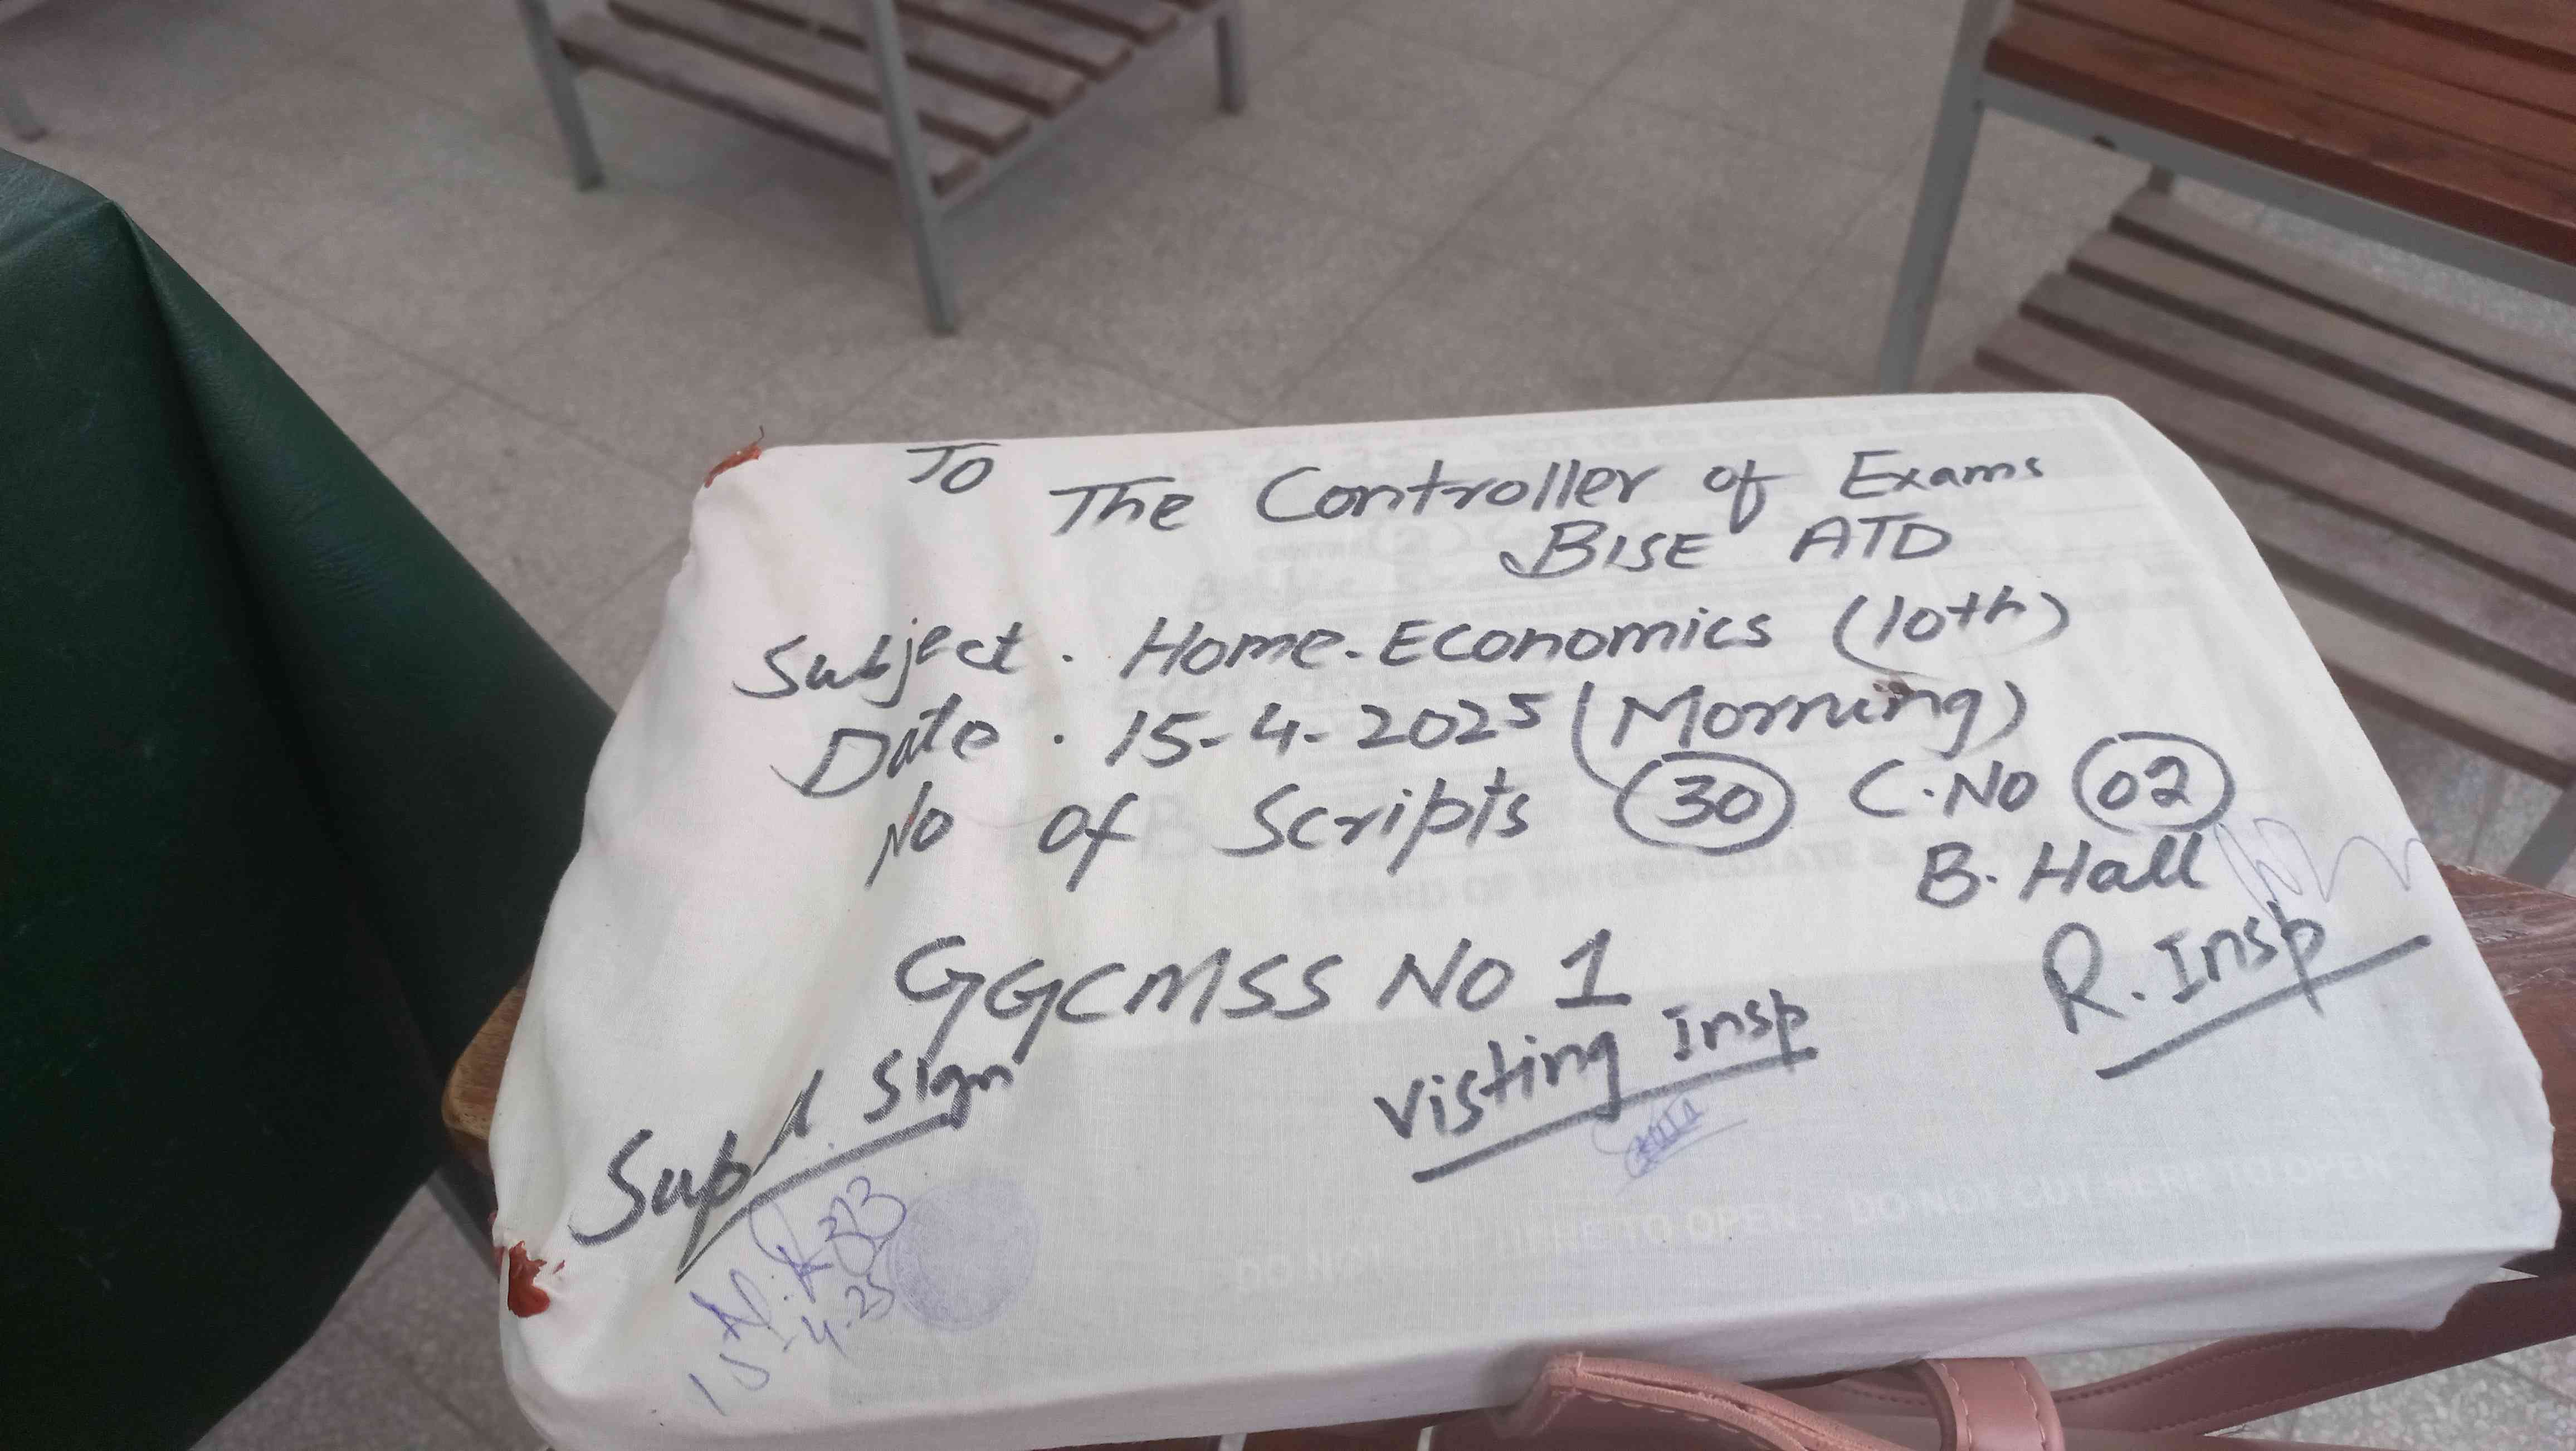 To
The Controller of Exams
BISE ATD
Subject. Home-Economics (10th)
Date. 15-4-2025 (Morning)
No of Scripts 30 C.No 02
B. Hall
GGCMSS No 1
R. Insp
Supdt. Sign
Visting Insp
15-4-25
DO NOT CUT HERE TO OPEN - DO NOT CUT HERE TO OPEN -
BOARD OF INTERMEDIATE &